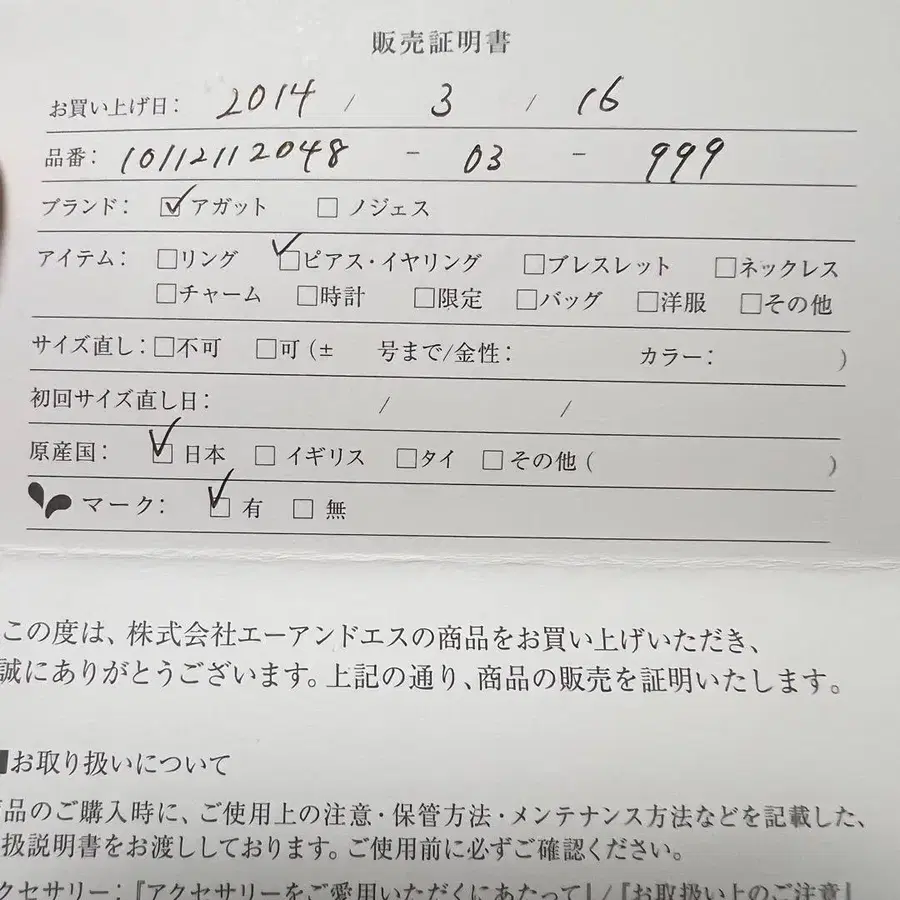 販売証明書
お買い上げ日: 2014 / 3 / 16
品番: 10112112048 - 03 - 999
ブランド: ☑アガット □ノジェス
アイテム: □リング ☑ピアス・イヤリング □ブレスレット □ネックレス
□チャーム □時計 □限定 □バッグ □洋服 □その他
サイズ直し: □不可 □可 (± 号まで/金性: カラー: )
初回サイズ直し日: / /
原産国: ☑日本 □イギリス □タイ □その他 ( )
マーク: ☑有 □無
この度は、株式会社エーアンドエスの商品をお買い上げいただき、
誠にありがとうございます。上記の通り、商品の販売を証明いたします。
■お取り扱いについて
品のご購入時に、ご使用上の注意・保管方法・メンテナンス方法などを記載した、
扱説明書をお渡ししております。ご使用前に必ずご確認ください。
クセサリー:『アクセサリーをご愛用いただくにあたって』/『お取扱い上のご注意』